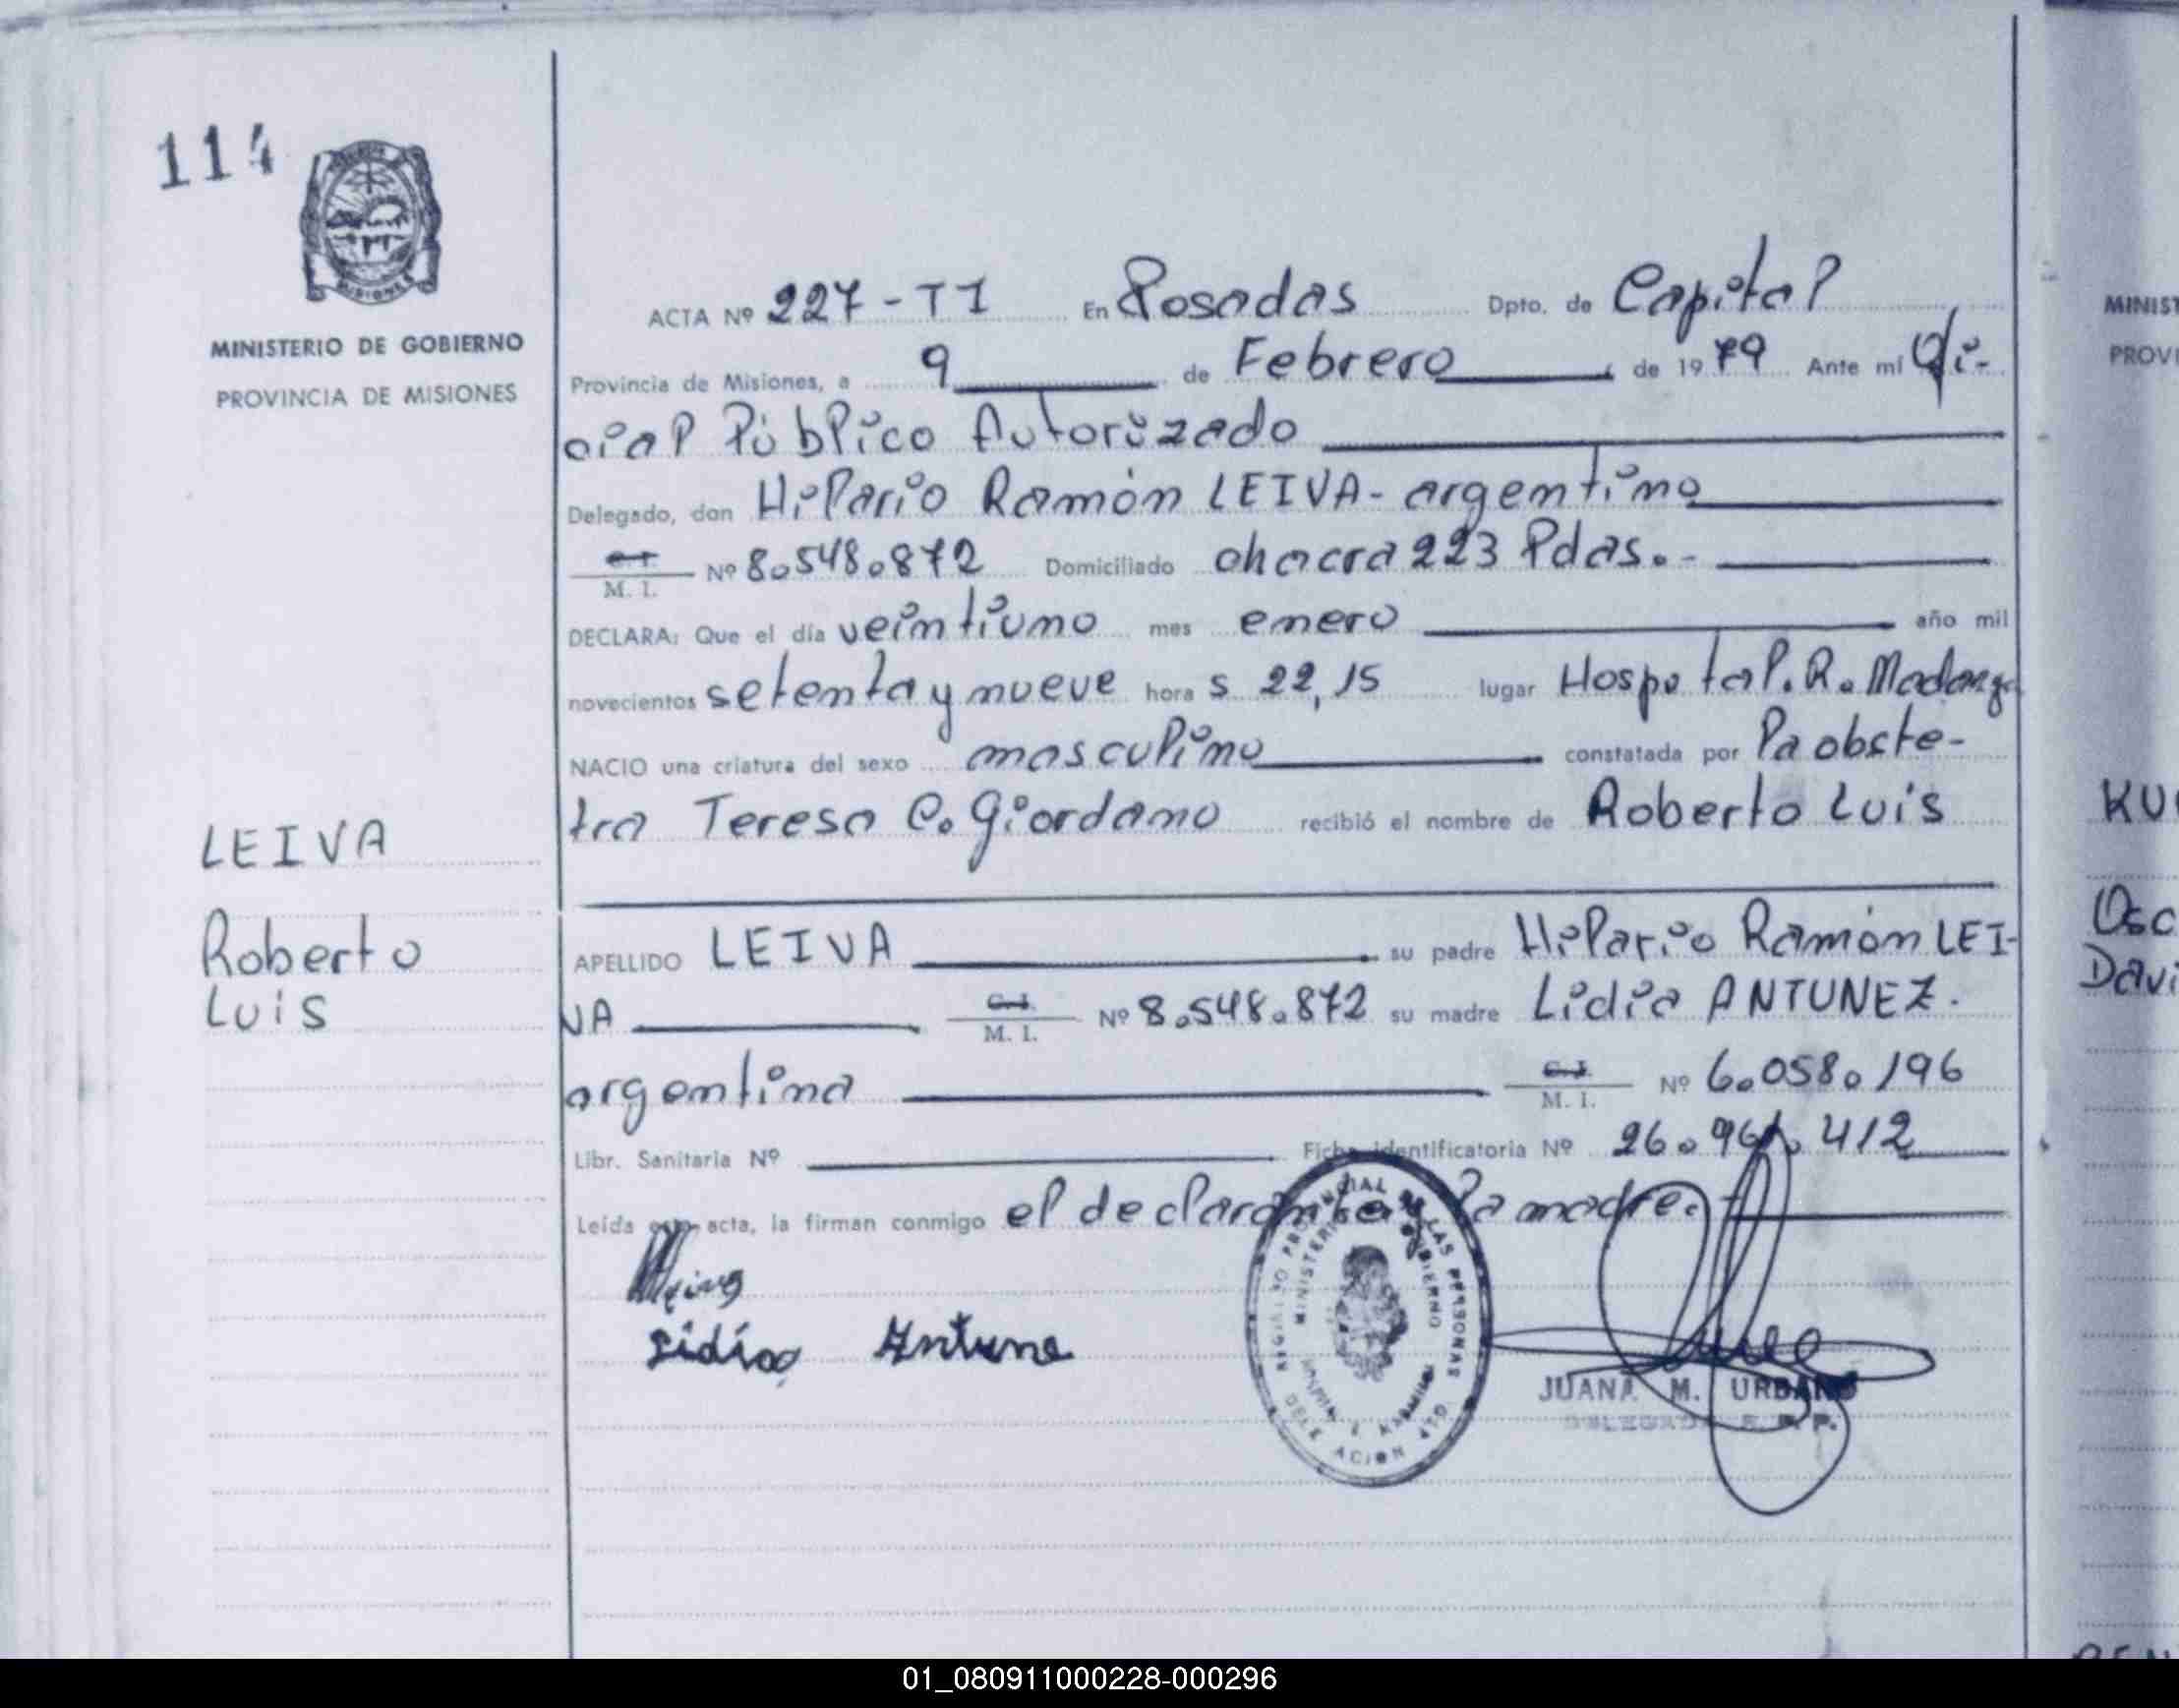 114
MISIONES
MINISTERIO DE GOBIERNO
PROVINCIA DE MISIONES
LEIVA
Roberto
Luis
ACTA Nº 227-T1 En Posadas Dpto. de Capital
Provincia de Misiones, a 9 de Febrero de 1979 Ante mí Ofi-
cial Público Autorizado
Delegado, don Hilario Ramón LEIVA - argentino
C.I. M. I. Nº 8.548.872 Domiciliado chacra 223 Pdas.-
DECLARA: Que el día veintiuno mes enero año mil
novecientos setenta y nueve hora s 22,15 lugar Hospital. R. Madarga
NACIO una criatura del sexo masculino constatada por la obste-
tra Teresa C. Giordano recibió el nombre de Roberto Luis
APELLIDO LEIVA su padre Hilario Ramón LEI-
VA C.I. M. I. Nº 8.548.872 su madre Lidia ANTUNEZ.
argentina C.I. M. I. Nº 6.058.196
Libr. Sanitaria Nº Ficha identificatoria Nº 26.961.412
Leída esta acta, la firman conmigo el declarante la madre.
Leiva
Lidia Antune
REGISTRO PROVINCIAL DE LAS PERSONAS
MINISTERIO GOBIERNO
DELEGACION
JUANA M. URBANO
DELEGADA R. P. P.
MINIST
PROVI
KU
Osc
Davi
01_080911000228-000296